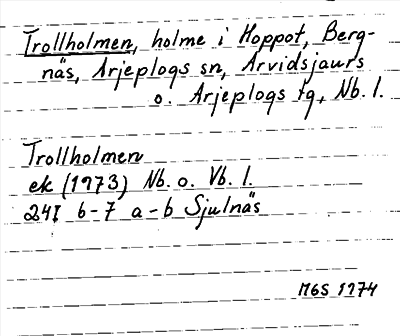 Trollholmen, holme i Hoppot, Berg-
näs, Arjeplogs sn, Arvidsjaurs
o. Arjeplogs tg, Nb. l.
Trollholmen
ek (1973) Nb. o. Vb. l.
24I 6-7 a-b Sjulnäs
MGS 1974